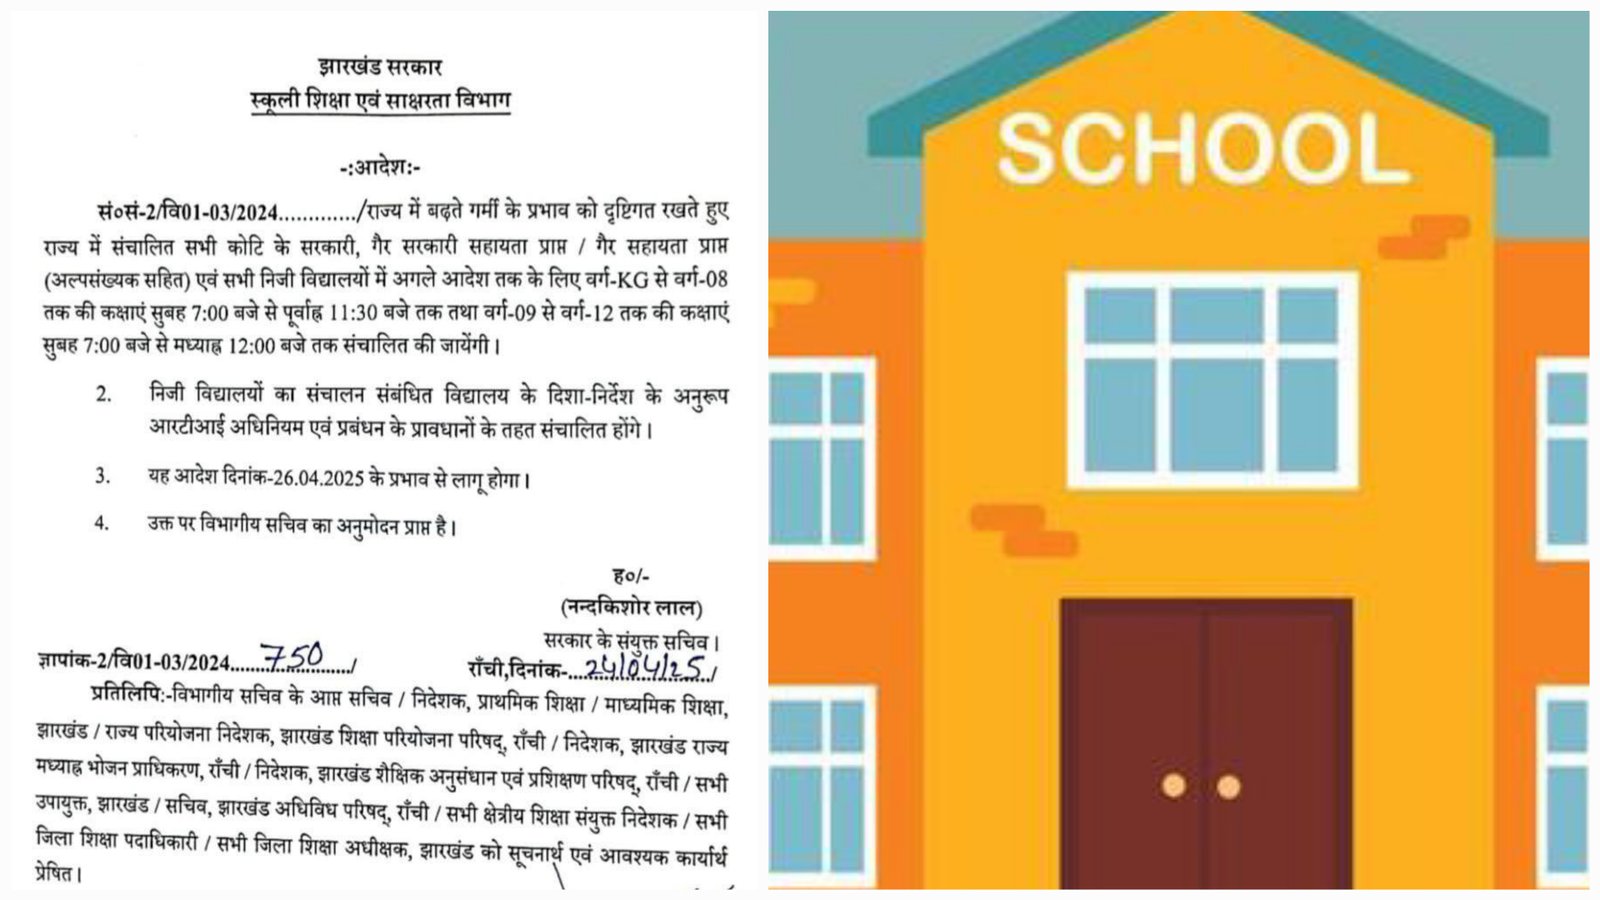 झारखंड सरकार
स्कूली शिक्षा एवं साक्षरता विभाग
-:आदेश:-
सं०सं-2/वि01-03/2024............./राज्य में बढ़ते गर्मी के प्रभाव को दृष्टिगत रखते हुए
राज्य में संचालित सभी कोटि के सरकारी, गैर सरकारी सहायता प्राप्त / गैर सहायता प्राप्त
(अल्पसंख्यक सहित) एवं सभी निजी विद्यालयों में अगले आदेश तक के लिए वर्ग-KG से वर्ग-08
तक की कक्षाएं सुबह 7:00 बजे से पूर्वाह्न 11:30 बजे तक तथा वर्ग-09 से वर्ग-12 तक की कक्षाएं
सुबह 7:00 बजे से मध्याह्न 12:00 बजे तक संचालित की जायेंगी।
2. निजी विद्यालयों का संचालन संबंधित विद्यालय के दिशा-निर्देश के अनुरूप
आरटीआई अधिनियम एवं प्रबंधन के प्रावधानों के तहत संचालित होंगे।
3. यह आदेश दिनांक-26.04.2025 के प्रभाव से लागू होगा।
4. उक्त पर विभागीय सचिव का अनुमोदन प्राप्त है।
ह०/-
(नन्दकिशोर लाल)
सरकार के संयुक्त सचिव।
ज्ञापांक-2/वि01-03/2024.......750......../ राँची,दिनांक-...24/04/25.../
प्रतिलिपि:-विभागीय सचिव के आप्त सचिव / निदेशक, प्राथमिक शिक्षा / माध्यमिक शिक्षा,
झारखंड / राज्य परियोजना निदेशक, झारखंड शिक्षा परियोजना परिषद्, राँची / निदेशक, झारखंड राज्य
मध्याह्न भोजन प्राधिकरण, राँची / निदेशक, झारखंड शैक्षिक अनुसंधान एवं प्रशिक्षण परिषद्, राँची / सभी
उपायुक्त, झारखंड / सचिव, झारखंड अधिविध परिषद्, राँची / सभी क्षेत्रीय शिक्षा संयुक्त निदेशक / सभी
जिला शिक्षा पदाधिकारी / सभी जिला शिक्षा अधीक्षक, झारखंड को सूचनार्थ एवं आवश्यक कार्यार्थ
प्रेषित।
SCHOOL